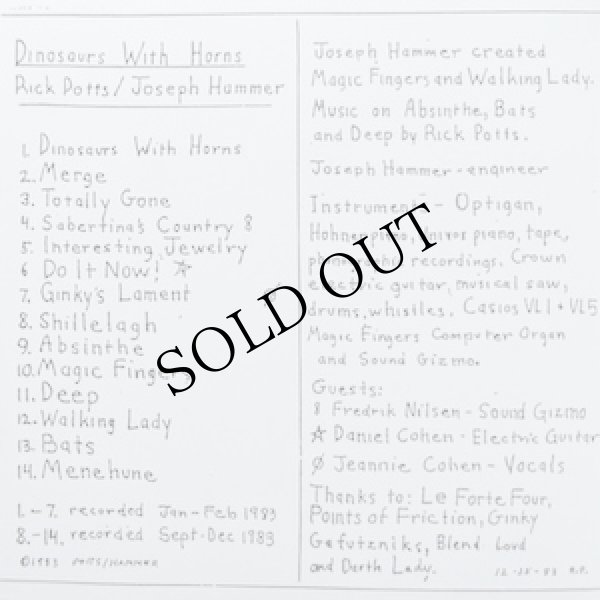 Dinosaurs With Horns
Rick Potts / Joseph Hammer
1. Dinosaurs With Horns
2. Merge
3. Totally Gone
4. Sabertina's Country 8
5. Interesting Jewelry
6 Do It Now! ☆
7. Ginky's Lament Ø
8. Shillelagh
9. Absinthe
10. Magic Fingers
11. Deep
12. Walking Lady
13. Bats
14. Menehune
1.-7. recorded Jan-Feb 1983
8.-14. recorded Sept-Dec 1983
©1983 POTTS/HAMMER
Joseph Hammer created
Magic Fingers and Walking Lady.
Music on Absinthe, Bats
and Deep by Rick Potts.
Joseph Hammer - engineer
Instruments - Optigan,
Hohner piano, piano, tape,
phonographic recordings. Crown
electric guitar, musical saw,
drums, whistles. Casios VL1 + VL5
Magic Fingers Computer Organ
and Sound Gizmo.
Guests:
8 Fredrik Nilsen - Sound Gizmo
☆ Daniel Cohen - Electric Guitar
Ø Jeannie Cohen - Vocals
Thanks to: Le Forte Four,
Points of Friction, Ginky
Gefutzniks, Blend Lord
and Darth Lady.
SOLD OUT